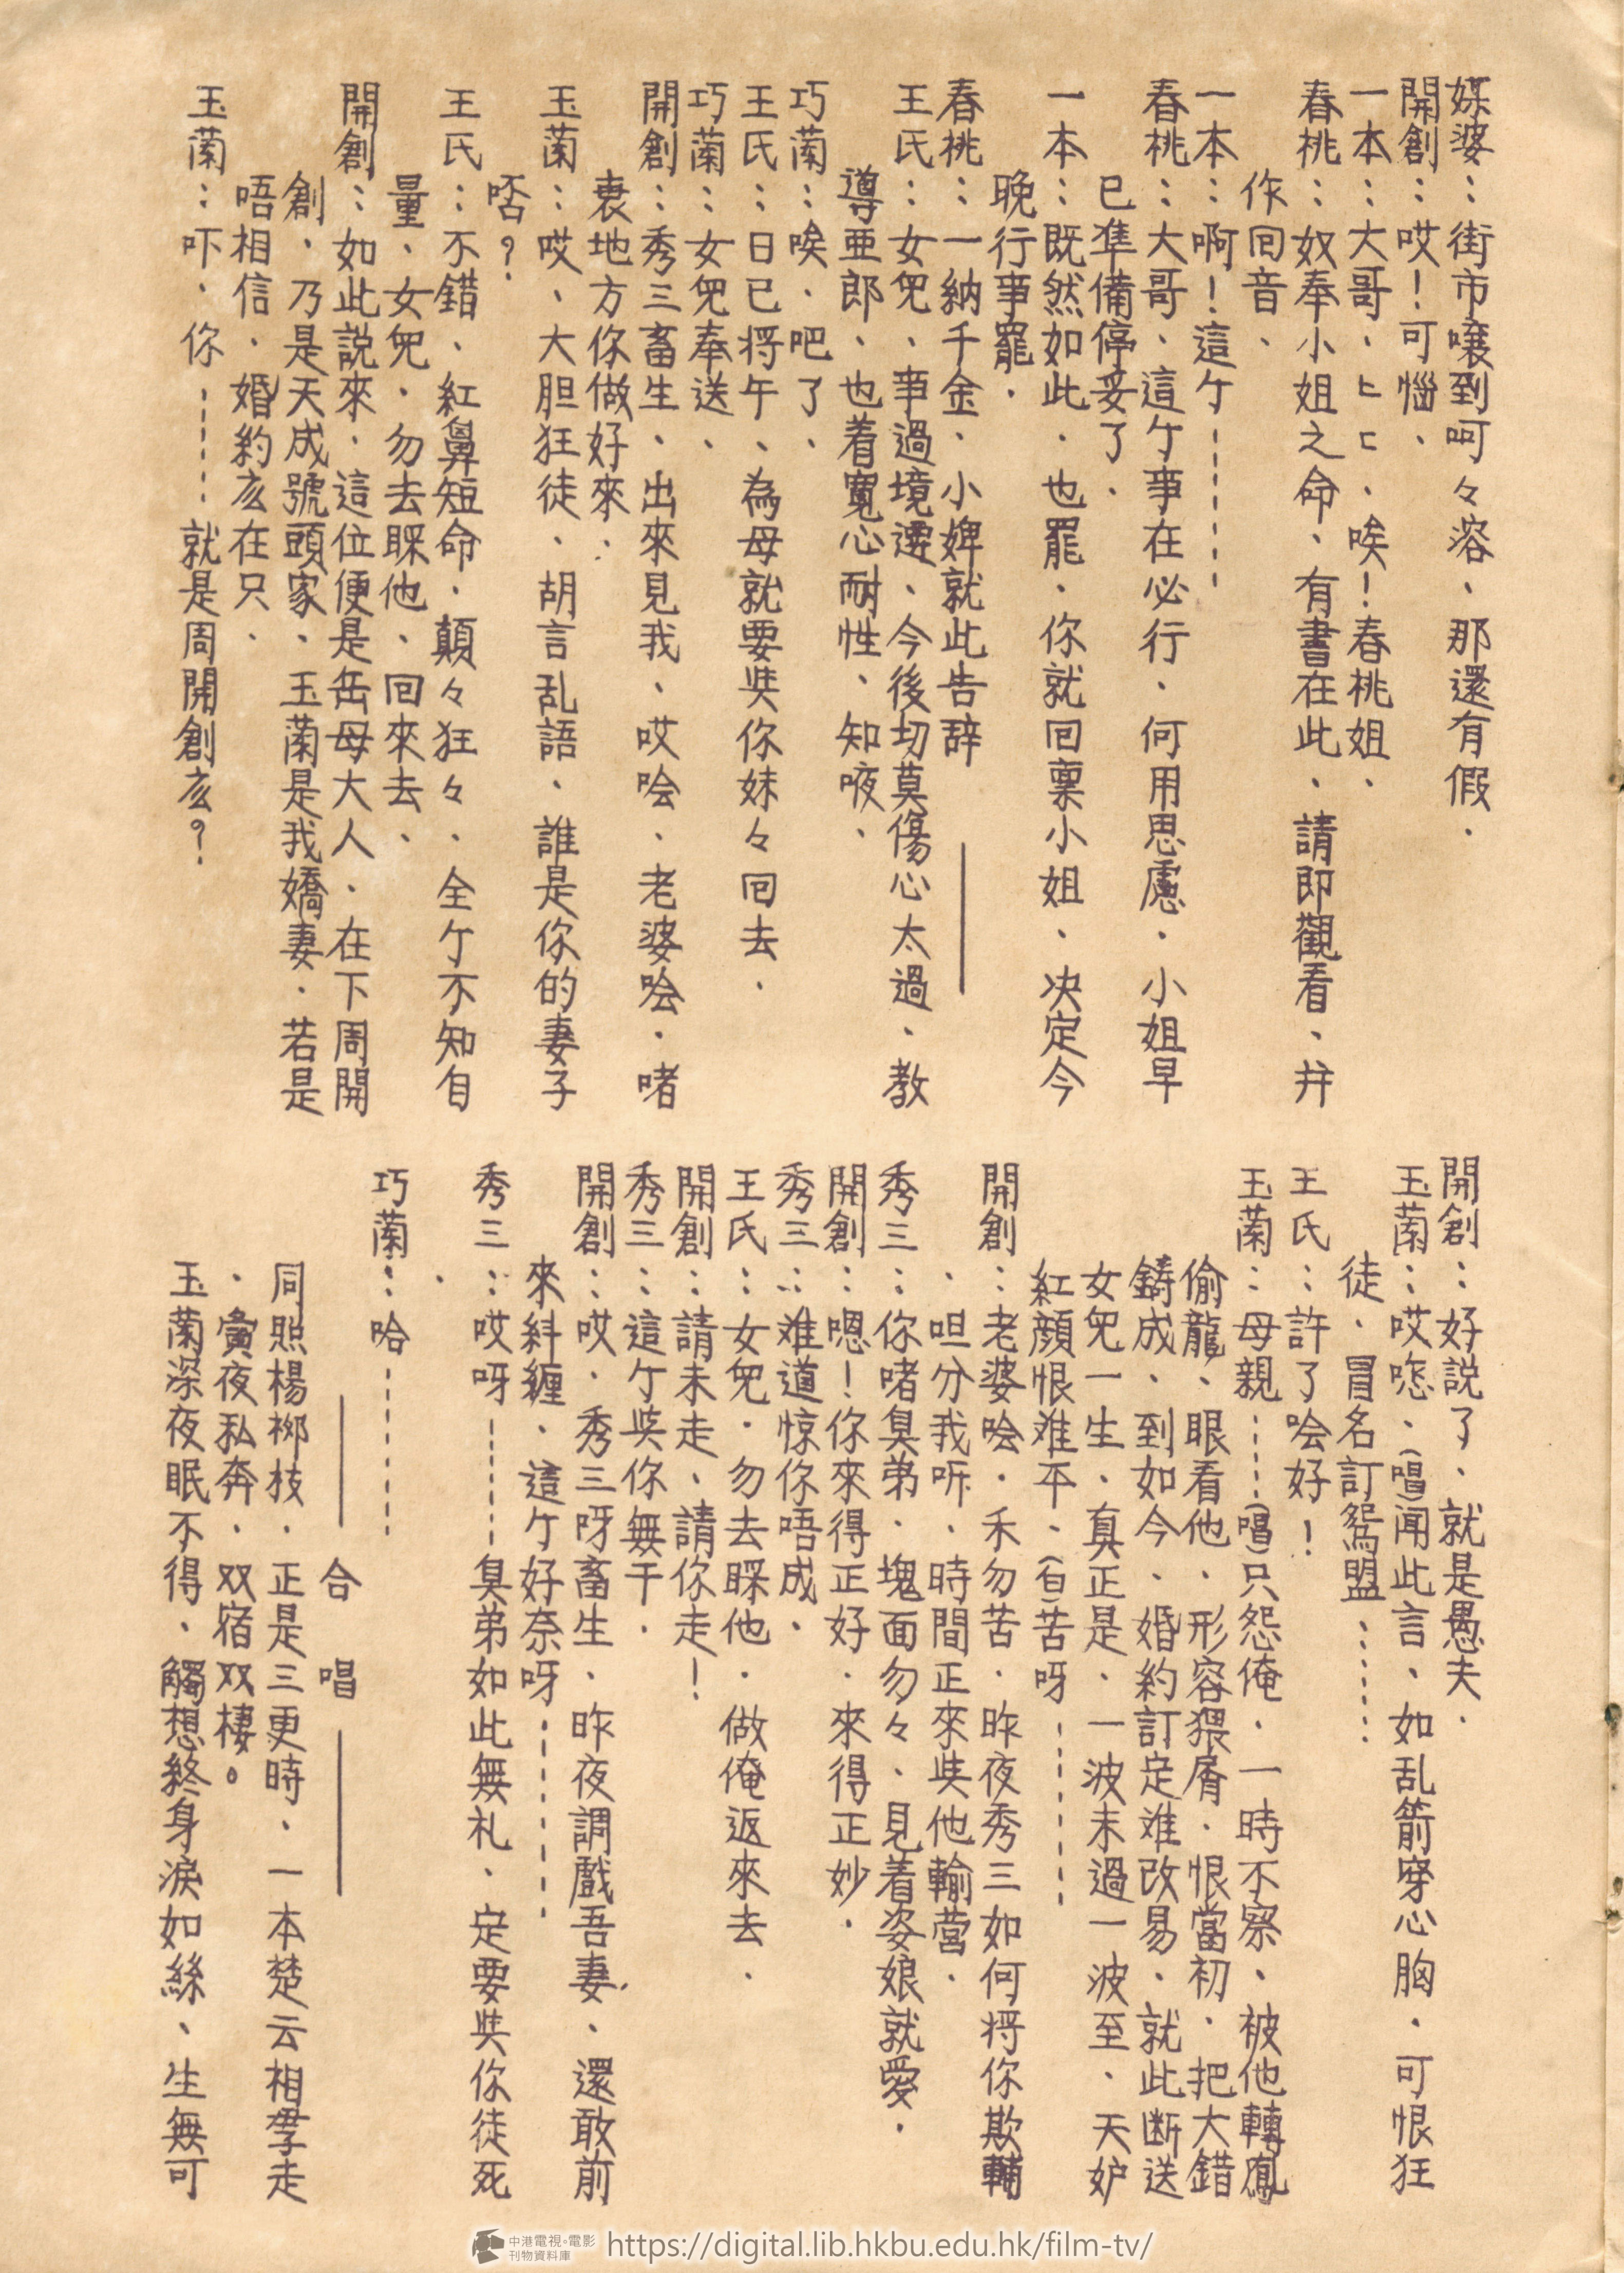 媒婆：街市嚷到呵々溶、那還有假．
開創：哎！可惱、
一本：大哥、ㄊㄈ、唉！春桃姐、
春桃：奴奉小姐之命、有書在此、請即觀看、幷
作回音、
一本：啊！這亇………
春桃：大哥、這亇事在必行、何用思慮．小姐早
已準備停妥了．
一本：既然如此．也罷、你就回稟小姐、决定今
晚行事罷．
春桃：一納千金、小婢就此告辞 ———
王氏：女兒、事過境遷、今後切莫傷心太過、教
導亜郎、也着寬心耐性、知啲、
巧蘭：唉．吧了、
王氏：日已将午、為母就要㒷你妹々回去．
巧蘭：女兒奉送、
開創：秀三畜生、出來見我、哎唫、老婆唫．啫
衰地方你做好來．
玉蘭：哎、大胆狂徒、胡言乱語、誰是你的妻子
唔？
王氏：不錯、紅鼻短命、顛々狂々、全亇不知自
量、女兒．勿去睬他、回來去、
開創：如此説來．這位便是岳母大人．在下周開
創，乃是天成號頭家、玉蘭是我嬌妻．若是
唔相信、婚約亥在只．
玉蘭：吓、你………就是周開創亥？
開創：好説了、就是愚夫．
玉蘭：哎唿、(唱)闻此言、如乱箭穿心胸．可恨狂
徒、冒名訂鴛盟………
王氏：許了唫好！
玉蘭：母親……(唱)只怨俺．一時不察、被他轉鳳
偷龍、眼看他．形容猥屑．恨當初．把大錯
鑄成、到如今、婚約訂定难改易、就此断送
女兒一生、真正是．一波未過一波至、天妒
紅顏恨难平、(白)苦呀………
開創：老婆唫．禾勿苦．昨夜秀三如何将你欺輔
．呾分我听．時間正來㒷他輸営．
秀三：你啫臭弟．塊面勿々、見着姿娘就愛．
開創：嗯！你來得正好．來得正妙．
秀三：难道惊你唔成、
王氏：女兒．勿去睬他．做俺返來去．
開創：請未走、請你走！
秀三：這亇㒷你無干．
開創：哎．秀三呀畜生、昨夜調戲吾妻、還敢前
來糾纒、這亇好奈呀………
秀三：哎呀………臭弟如此無礼、定要㒷你徒死
．
巧蘭：哈………
——— 合 唱 ———
同照楊柳枝．正是三更時、一本楚云相牽走
．夤夜私奔．双宿双棲。
玉蘭深夜眠不得、觸想終身淚如絲、生無可
中港電視・電影
刊物資料庫
https://digital.lib.hkbu.edu.hk/film-tv/